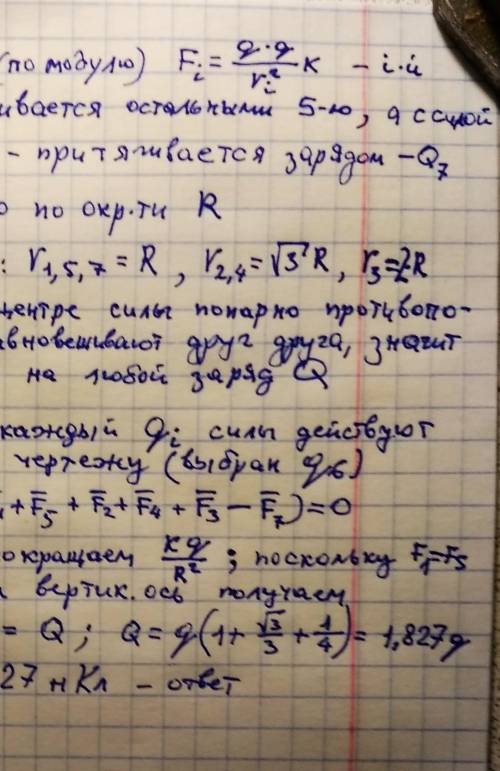 (по модулю) Fᵢ = q·q/rᵢ² к – i-й
ивается остальными 5-ю, а с силой
– притягивается зарядом –Q₇
о по окр-ти R
: r₁,₅,₇ = R, r₂,₄ = √3 R, r₃ = 2R
центре силы попарно противопо-
авновешивают друг друга, значит
на любой заряд Q
каждый qᵢ силы действуют
чертежу (выбран q₆)
+ F̅₅ + F̅₂ + F̅₄ + F̅₃ – F̅₇) = 0
окращаем кq/R² ; поскольку F₁=F₅
вертик. ось получаем
= Q; Q = q(1 + √3/3 + 1/4) = 1,827q
27 нКл – ответ